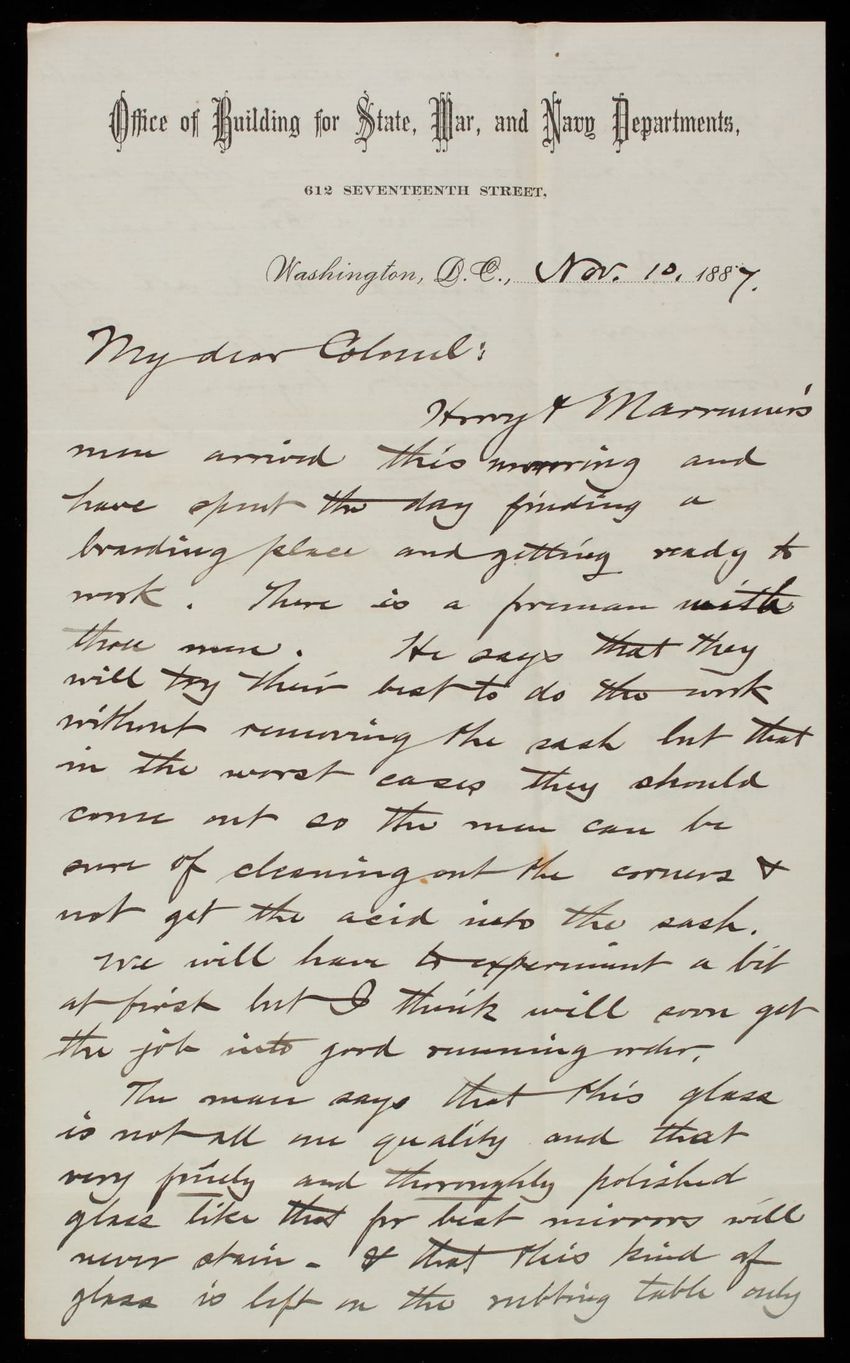 Office of Building for State, War, and Navy Departments,
612 SEVENTEENTH STREET,
Washington, D.C., Nov. 10, 1887.
My dear Colonel:
&
men arrived this morning and
have spent the day finding a
boarding place and getting ready to
work. There is a foreman with
three men. He says that they
will try their best to do the work
without removing the sash but that
in the worst cases they should
come out so the men can be
sure of cleaning out the corners &
not get the acid into the sash.
We will have to experiment a bit
at first but I think will soon get
the job into good running order.
The man says that this glass
is not all one quality and that
very finely and thoroughly polished
glass like that for best mirrors will
never stain - & that this kind of
glass is left on the rubbing table only